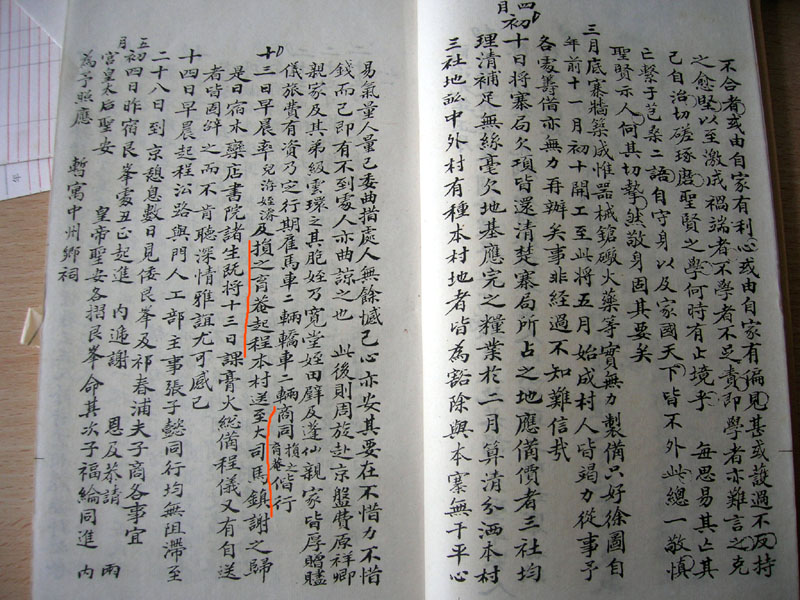 不合者或由自家有利心或由自家有偏見甚或護過不反持
之愈堅以至激成禍端者不學者不足責即學者亦難言之克
己自治切磋琢磨聖賢之學何時有止境乎　每思易其亡其
亡繫于苞桑二語自守身以及家國天下皆不外此總一敬慎
聖賢示人何其切摯然敬身固其要矣
三月底寨牆築成惟器械鎗礮火藥等實無力製備只好徐圖自
年前十一月初十開工至此將五月始成村人皆竭力從事予
各處籌借亦無力再辦矣事非經過不知難信哉
四月初十日將寨局欠項皆還清楚寨局所占之地應備價者三社均
理清補足無絲毫欠地基應完之糧業於二月算清分洒本村
三社地畝中外村有種本村地者皆為豁除與本寨無干平心
易氣量人量己委曲措處人無餘憾己心亦安其要在不惜力不惜
錢而已即有不到處人亦曲諒之也　此後則周旋赴京盤費原祥卿
親家及其弟級雲環之其胞姪乃寬堂姪田厈及蓬仙親家皆厚贈贐
儀旅費有資乃定行期雇馬車二輛轎車二輛商同損之育菴偕行
十三日早晨率兒浴姪濬及損之育菴起程本村送至大司馬鎮謝之歸
是日宿木欒店書院諸生既將十三日課膏火総備程儀又有自送
者皆固辞之而不肯聽深情雅誼尤可感已
十四日早晨起程沿路與門人工部主事張子懿同行均無阻滯至
二十八日到京憩息數日見倭艮峯及祁春浦夫子商各事宜
五月初四日昨宿艮峯處丑正起進　内遞謝　恩反恭請　兩
宮皇太后聖安　皇帝聖安各摺艮峯命其次子福綸同進　内
為予照應　暫寓中州鄉祠